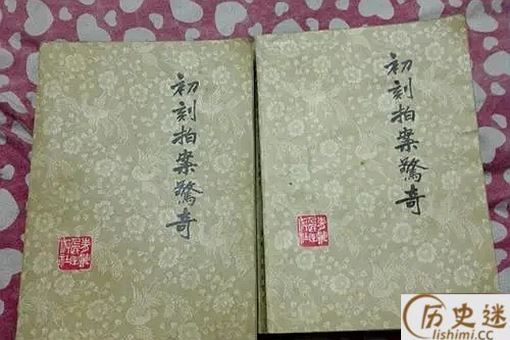 初刻拍案驚奇
初刻拍案驚奇
历史迷
lishimi.cc